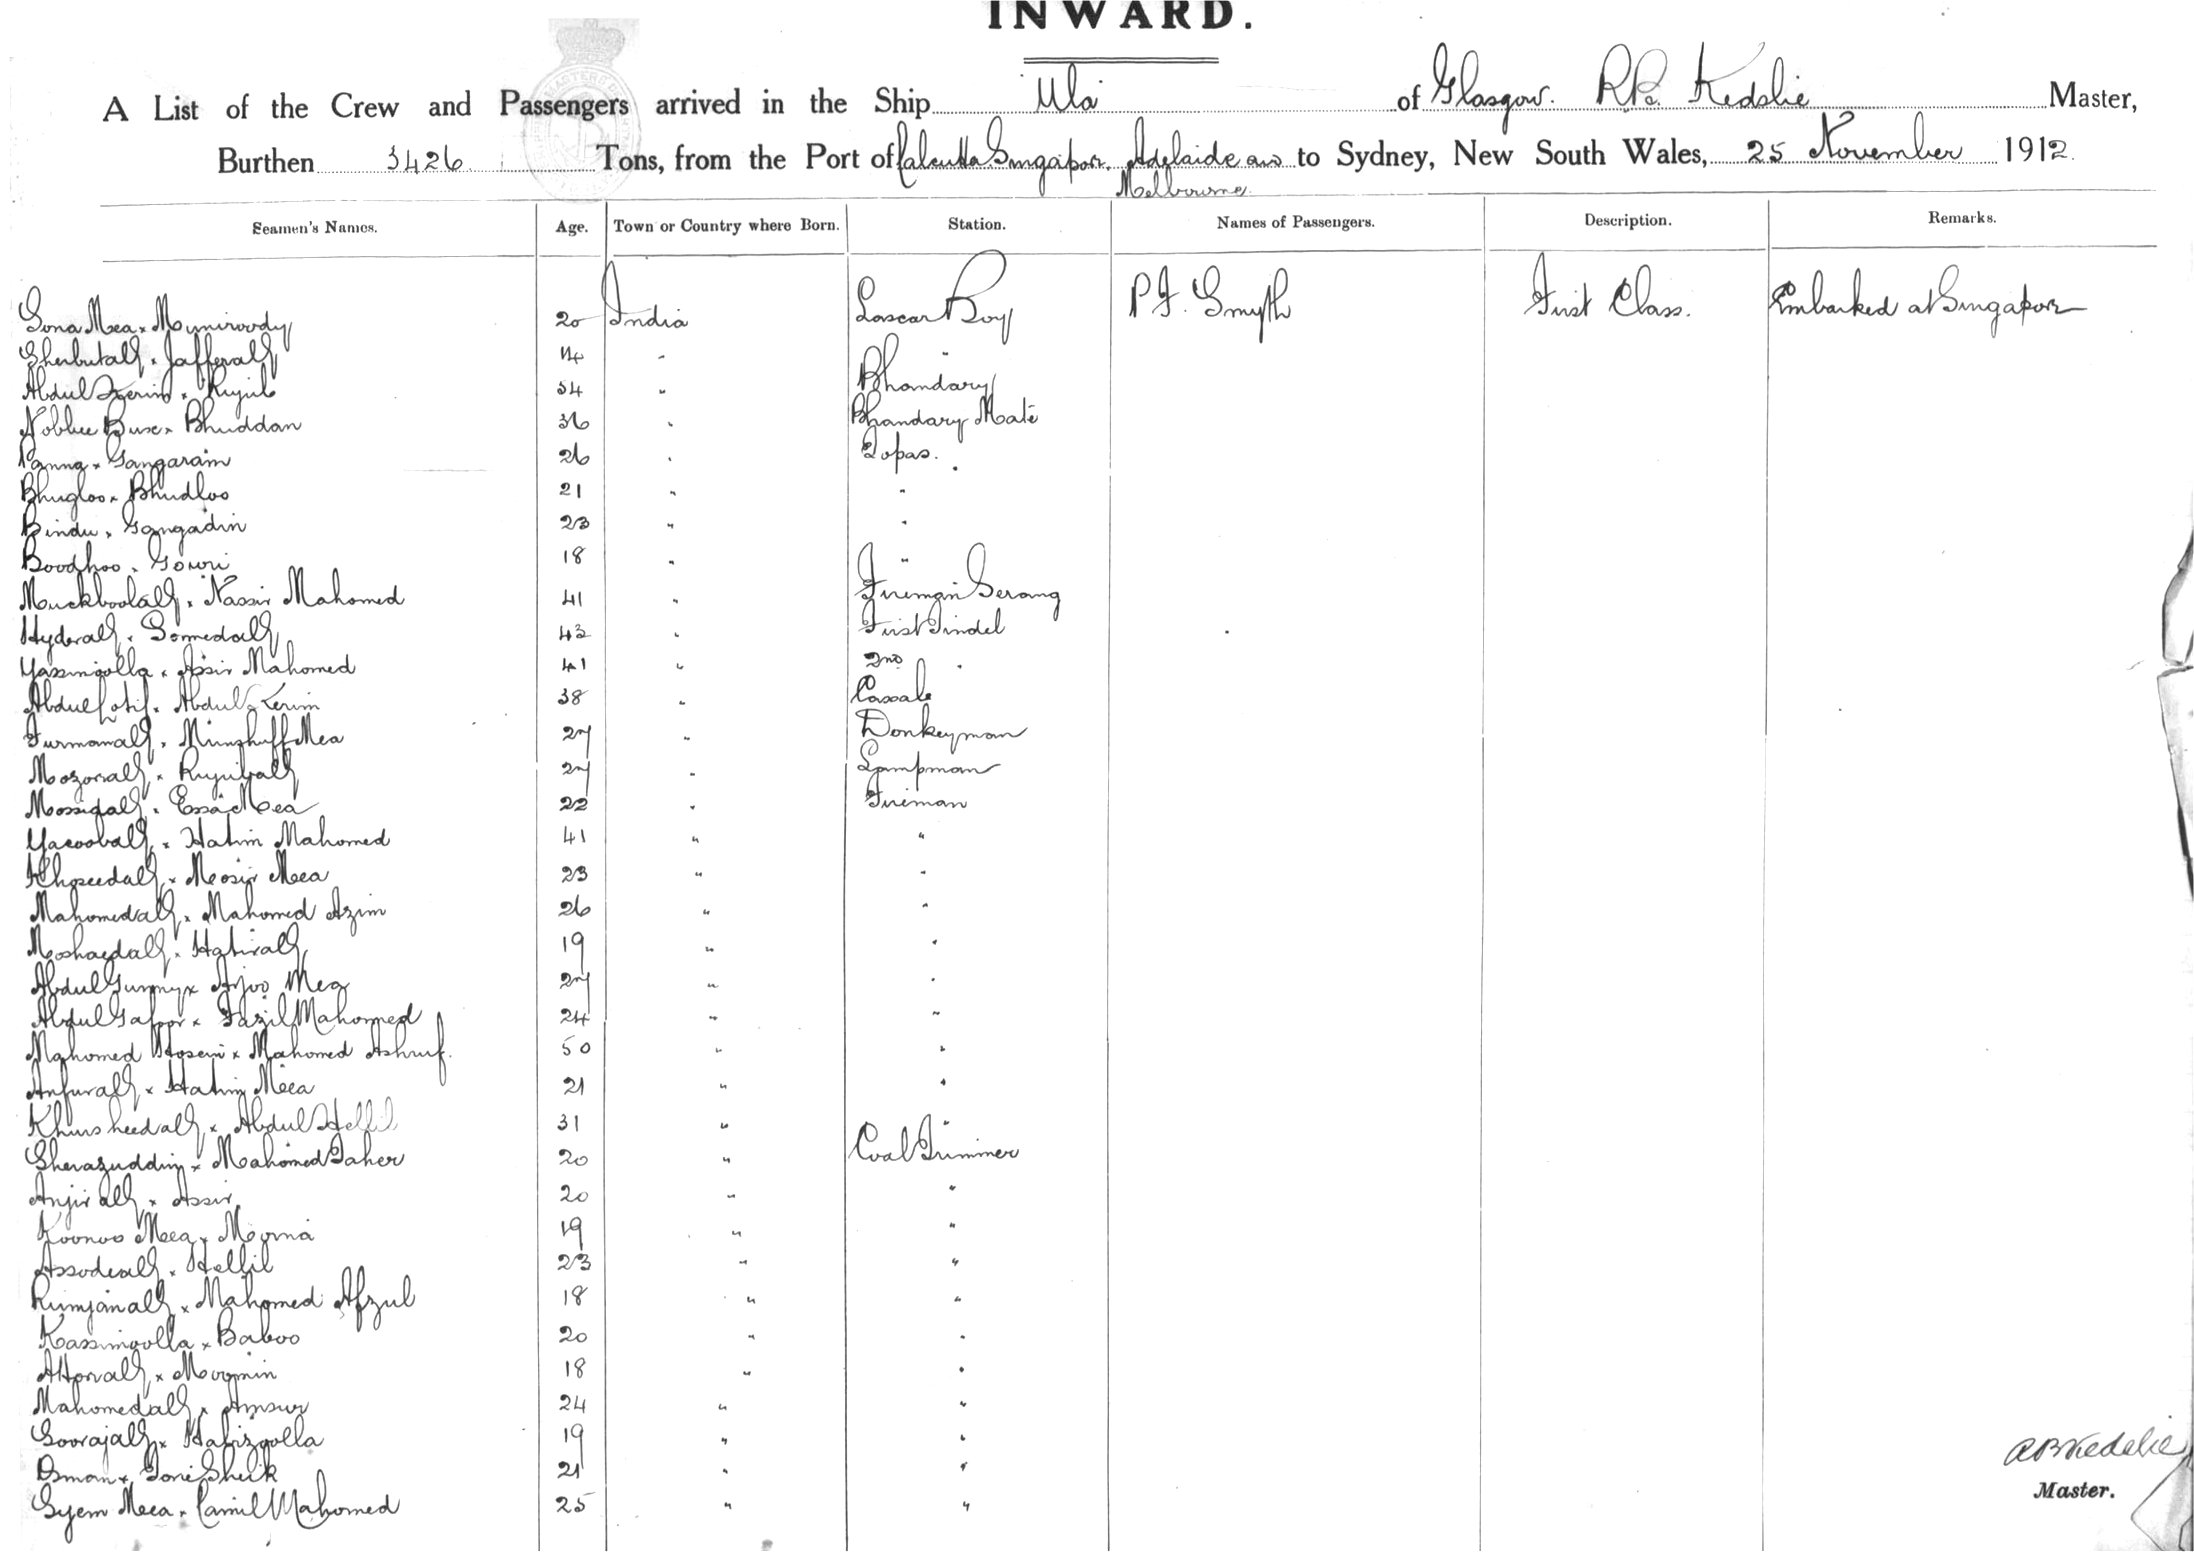 INWARD.
A List of the Crew and Passengers arrived in the Ship Ula of Glasgow. R.B. Kedslie Master,
Burthen 3426 Tons, from the Port of Calcutta Singapore, Adelaide and to Sydney, New South Wales, 25 November 1912.
Melbourne.
Seamen's Names. Age. Town or Country where Born. Station. Names of Passengers. Description. Remarks.
Sona Mea x Muniroody 20 India Lascar Boy P F. Smyth First Class. Embarked at Singapore
14 " "
Abdul Kerim x Rujub 34 " Bhandary
Nobbee Bux x Bhuddan 36 " Bhandary Mate
Panna x Gangaram 26 " Topas.
Bhugloo x Bhudloo 21 " "
Bindu x Gangadin 23 " "
Boodhoo x Gowri 18 " "
Muckboolally x Nassir Mahomed 41 " Fireman Serang
Hyderally x 43 " First Tindel
Yassinoolla x Assir Mahomed 41 " 2nd "
Abdul Lotif x Abdul Kerim 38 " Cassab
Furmanally x Munshuff Mea 27 " Donkeyman
Mozorally x Rujubally 27 " Lampman
Mossidally x Essa Mea 22 " Fireman
Yacoobally x Hatim Mahomed 41 " "
Khoseedally x Mosir Meea 23 " "
Mahomedally x Mahomed Azim 26 " "
Moshaedally x Hatirally 19 " "
Abdul Gunny x Arjoo Mea 27 " "
Abdul Gafoor x Fazil Mahomed 24 " "
Mahomed Hosein x Mahomed Ashruf. 50 " "
Anfurally x Hatim Meea 21 " "
Khursheedally x Abdul Hellil 31 " "
Sherazuddin x Mahomed Taher 20 " Coal Trimmer
Anjirally x Assir 20 " "
Koonoo Meea x Momna 19 " "
Assodially x Hellil 23 " "
Rumjanally x Mahomed Afzul 18 " "
Kassimoolla x Baboo 20 " "
Attorally x Moomin 18 " "
Mahomedally x Amsur 24 " "
Soorajally x Hafizoolla 19 " "
Osman x Sheik 21 " "
Syem Meea x Camil Mahomed 25 " "
R B Kedslie
Master.